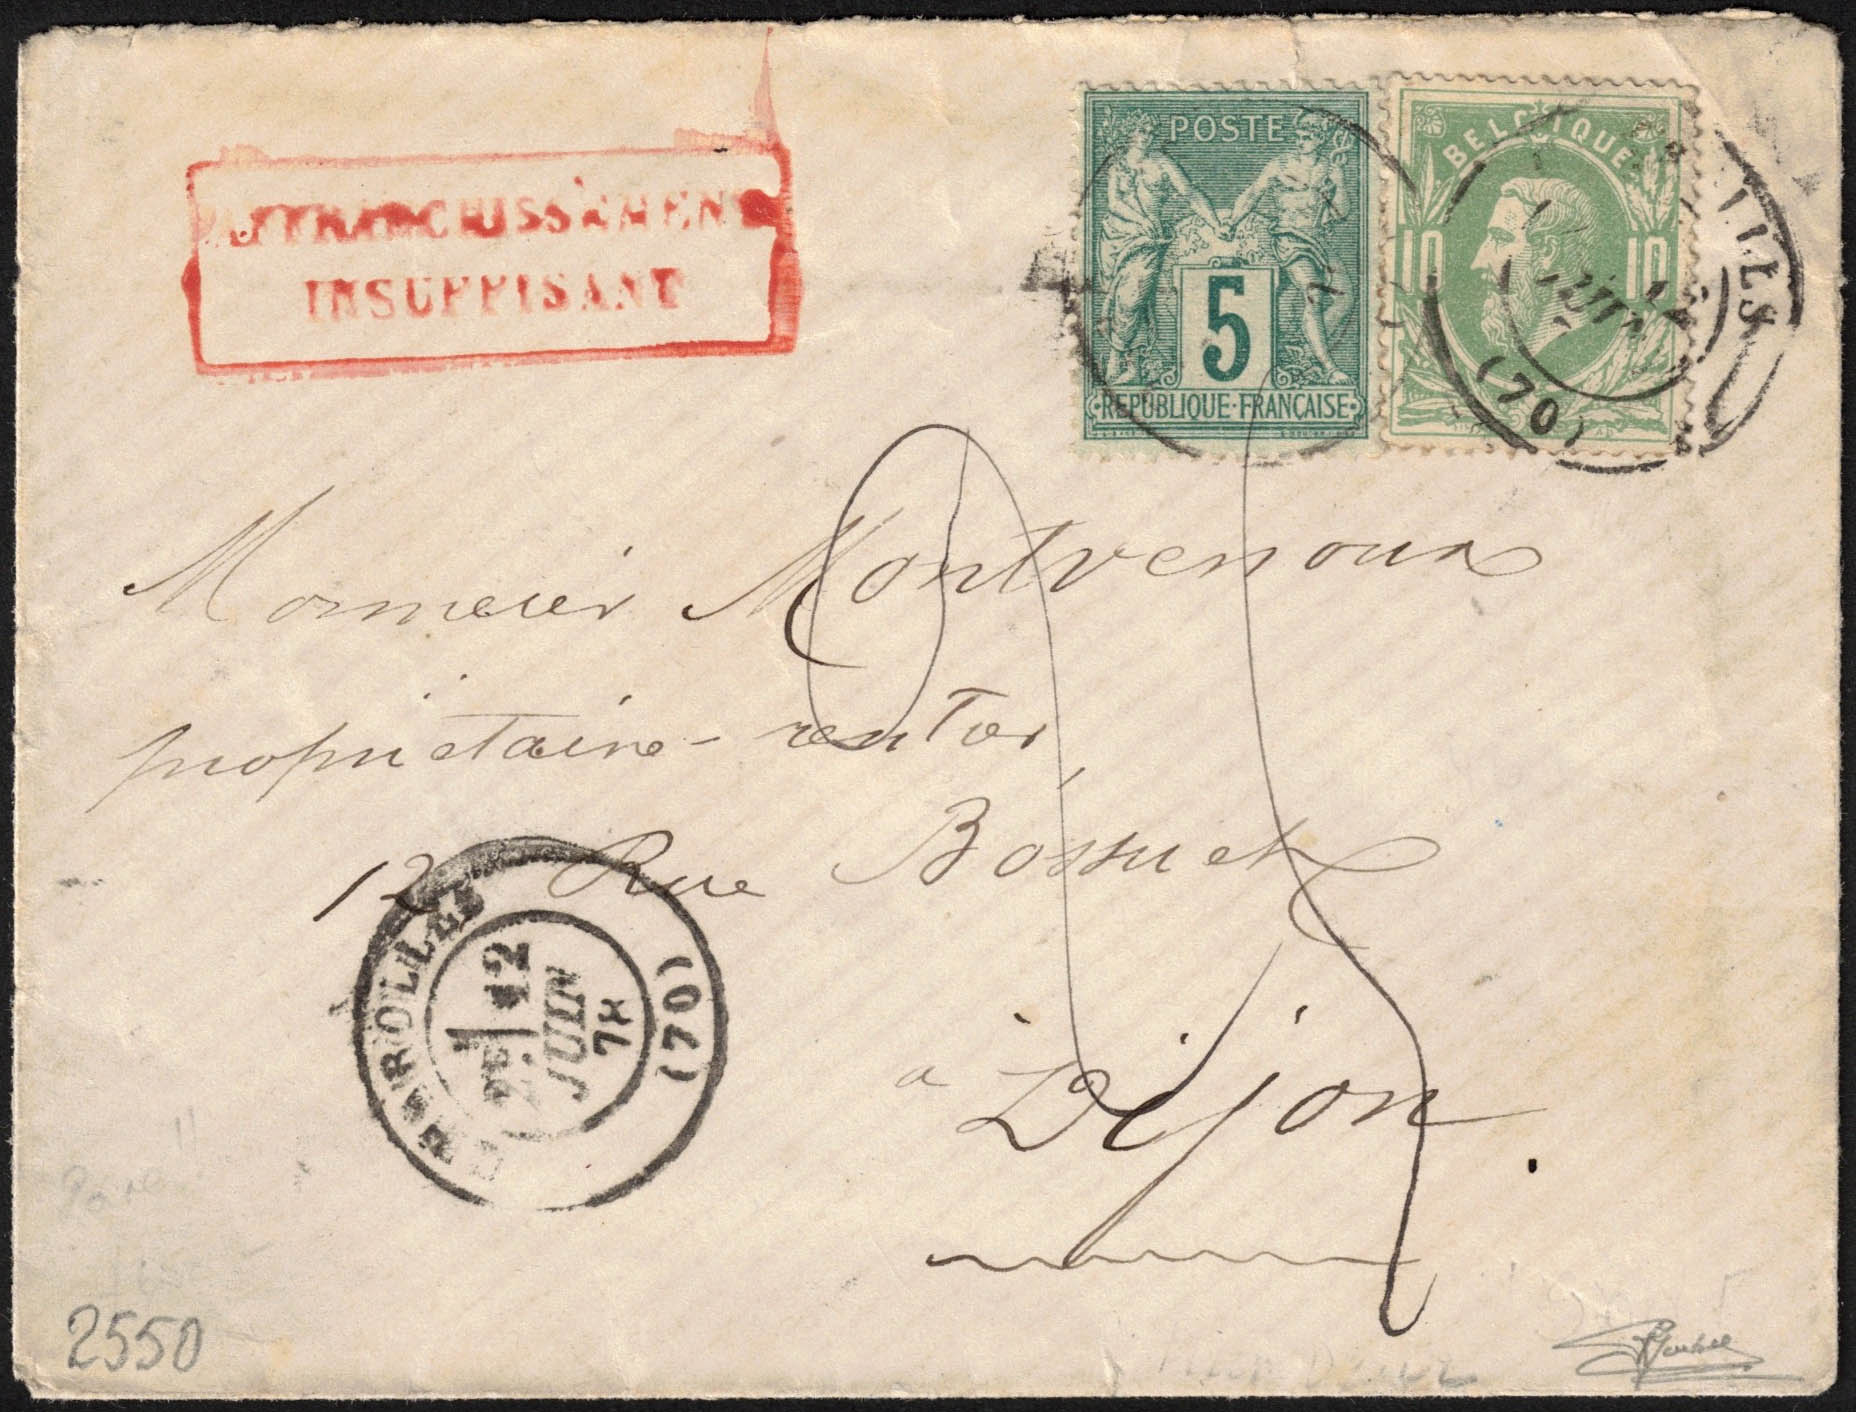 AFFRANCHISSEMENT
INSUFFISANT
POSTE
5
REPUBLIQUE·FRANÇAISE
BELGIQUE
10 10
JUIN
(70)
Monsieur Montvenoux
propriétaire-rentier
12 Rue Bossuet
à Dijon
MAROLLES
2E
12
JUIN
78
(70)
2550